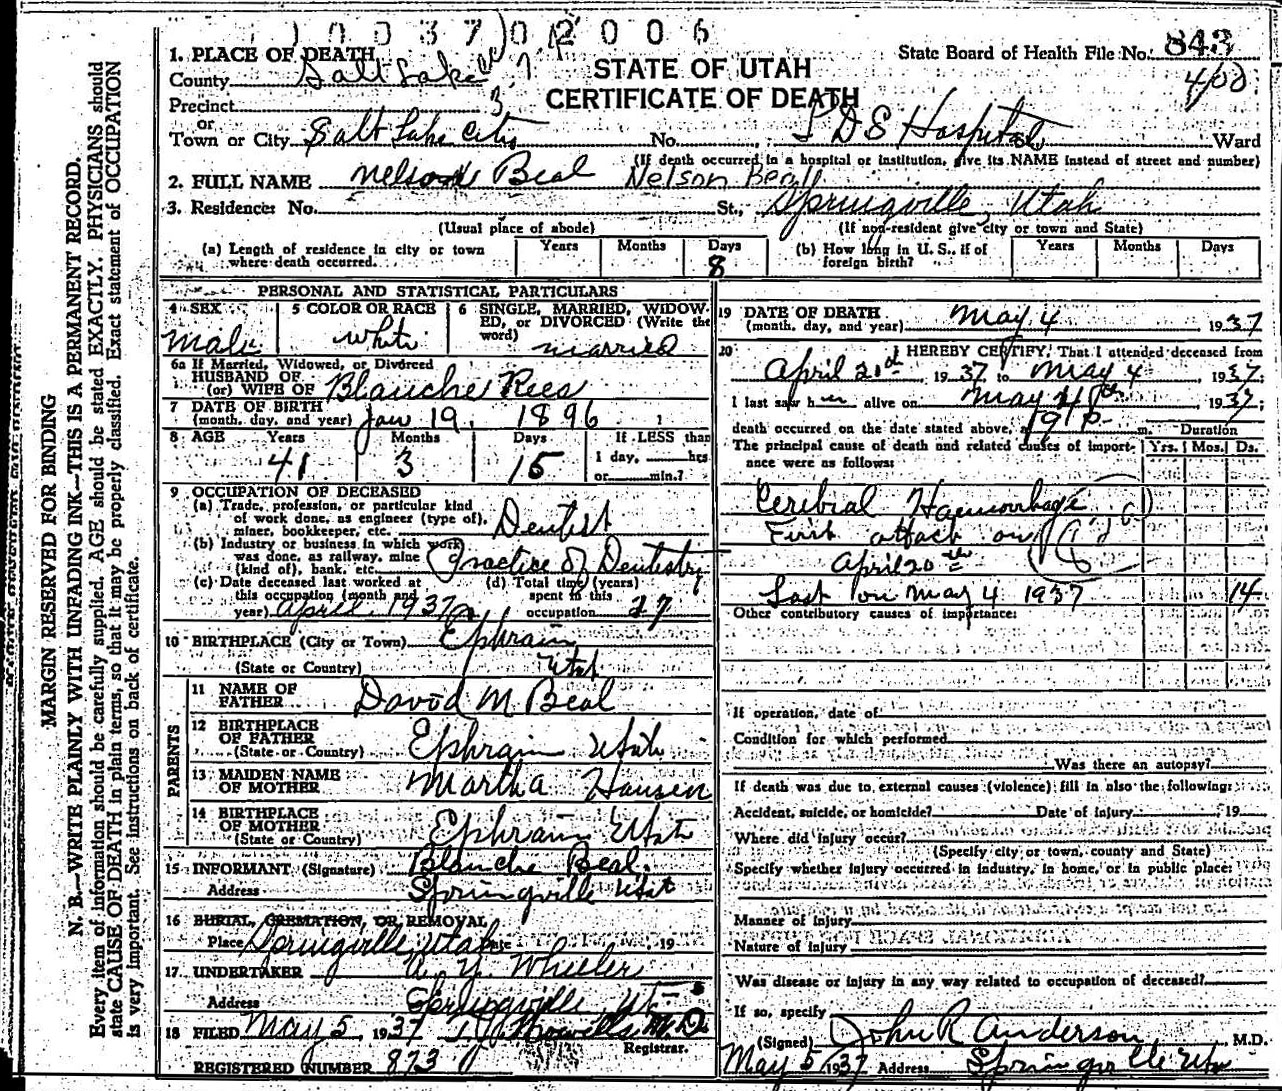 1003702006
State Board of Health File No. 843
400
STATE OF UTAH
CERTIFICATE OF DEATH
1. PLACE OF DEATH
County Salt Lake
Precinct 3
or
Town or City Salt Lake City No. L D S Hospital Ward
(If death occurred in a hospital or institution, give its NAME instead of street and number)
2. FULL NAME Nelson Beal Nelson Beall
3. Residence: No. St., Springville, Utah
(Usual place of abode) (If non-resident give city or town and State)
(a) Length of residence in city or town where death occurred. Years Months Days 8
(b) How long in U. S., if of foreign birth? Years Months Days
PERSONAL AND STATISTICAL PARTICULARS
4 SEX male
5 COLOR OR RACE white
6 SINGLE, MARRIED, WIDOWED, or DIVORCED (Write the word) married
6a If Married, Widowed, or Divorced
HUSBAND OF
(or) WIFE OF Blanche Rees
7 DATE OF BIRTH
(month, day, and year) Jan 19, 1896
8 AGE Years 41 Months 3 Days 15 If LESS than
1 day, hrs
or min.?
9 OCCUPATION OF DECEASED
(a) Trade, profession, or particular kind
of work done, as engineer (type of),
miner, bookkeeper, etc. Dentist
(b) Industry or business in which work
was done, as railway, mine
(kind of), bank, etc. Practice of Dentistry
(c) Date deceased last worked at
this occupation (month and
year) April 1937
(d) Total time (years)
spent in this
occupation 27
10 BIRTHPLACE (City or Town) Ephraim
(State or Country) Utah
PARENTS
11 NAME OF
FATHER David M Beal
12 BIRTHPLACE
OF FATHER
(State or Country) Ephraim Utah
13 MAIDEN NAME
OF MOTHER Martha Hansen
14 BIRTHPLACE
OF MOTHER
(State or Country) Ephraim Utah
15 INFORMANT (Signature) Blanche Beal.
Address Springville Utah
16 BURIAL, CREMATION, OR REMOVAL
Place Springville, Utah Date 19
17 UNDERTAKER A. Y. Wheeler
Address Springville, Ut
18 FILED May 5, 1937 M.D.
Registrar.
REGISTERED NUMBER 873
19 DATE OF DEATH
(month, day, and year) May 4 1937
20 I HEREBY CERTIFY, That I attended deceased from
April 20th 1937, to May 4, 1937.
I last saw h alive on May 4th 1937
death occurred on the date stated above, at 9 P m. Duration
The principal cause of death and related causes of importance were as follows: Yrs. Mos. Ds.
Cerebral Haemorrhage
First attack on
April 20th
Last on May 4 1937 14
Other contributory causes of importance:
If operation, date of
Condition for which performed
Was there an autopsy?
If death was due to external causes (violence) fill in also the following:
Accident, suicide, or homicide? Date of injury 19
Where did injury occur?
(Specify city or town, county and State)
Specify whether injury occurred in industry, in home, or in public place:
Manner of Injury
Nature of injury
Was disease or injury in any way related to occupation of deceased?
If so, specify
(Signed) John R Anderson M.D.
May 5 1937 Address Springville Utah
MARGIN RESERVED FOR BINDING
N. B.—WRITE PLAINLY WITH UNFADING INK—THIS IS A PERMANENT RECORD.
Every item of information should be carefully supplied. AGE should be stated EXACTLY. PHYSICIANS should
state CAUSE OF DEATH in plain terms, so that it may be properly classified. Exact statement of OCCUPATION
is very important. See instructions on back of certificate.